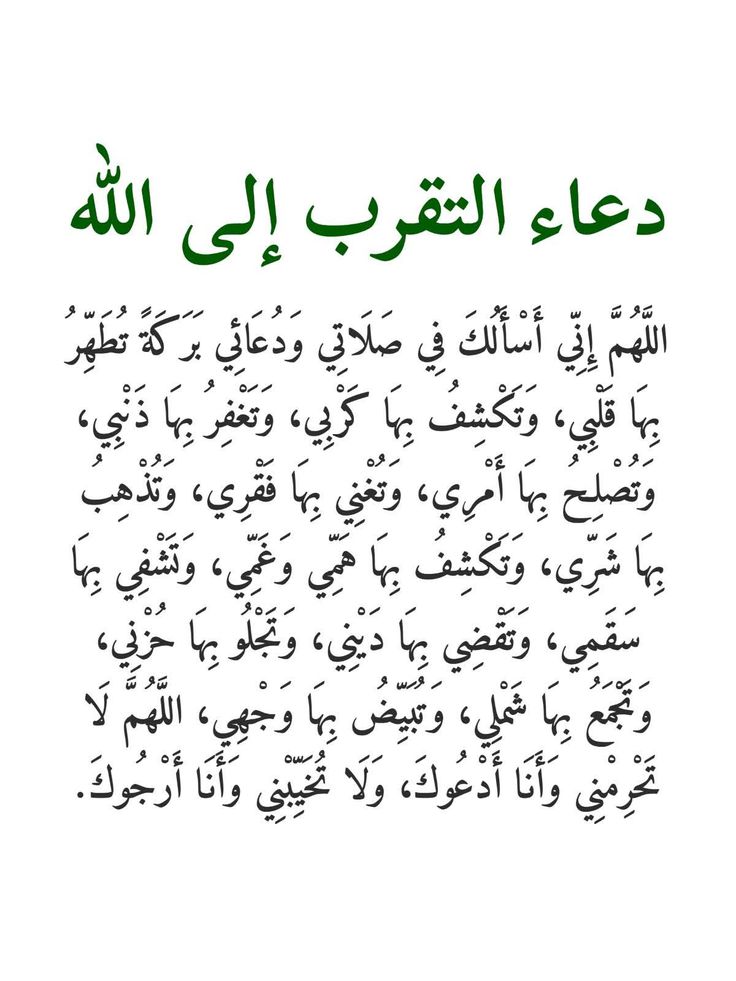 دعاء التقرب إلى الله
اللَّهُمَّ إِنِّي أَسْأَلُكَ فِي صَلَاتِي وَدُعَائِي بَرَكَةً تُطَهِّرُ
بِهَا قَلْبِي، وَتَكْشِفُ بِهَا كَرْبِي، وَتَغْفِرُ بِهَا ذَنْبِي،
وَتُصْلِحُ بِهَا أَمْرِي، وَتُغْنِي بِهَا فَقْرِي، وَتُذْهِبُ
بِهَا شَرِّي، وَتَكْشِفُ بِهَا هَمِّي وَغَمِّي، وَتَشْفِي بِهَا
سَقَمِي، وَتَقْضِي بِهَا دَيْنِي، وَتَجْلُو بِهَا حُزْنِي،
وَتَجْمَعُ بِهَا شَمْلِي، وَتُبَيِّضُ بِهَا وَجْهِي، اللَّهُمَّ لَا
تَحْرِمْنِي وَأَنَا أَدْعُوكَ، وَلَا تُخَيِّبْنِي وَأَنَا أَرْجُوكَ.